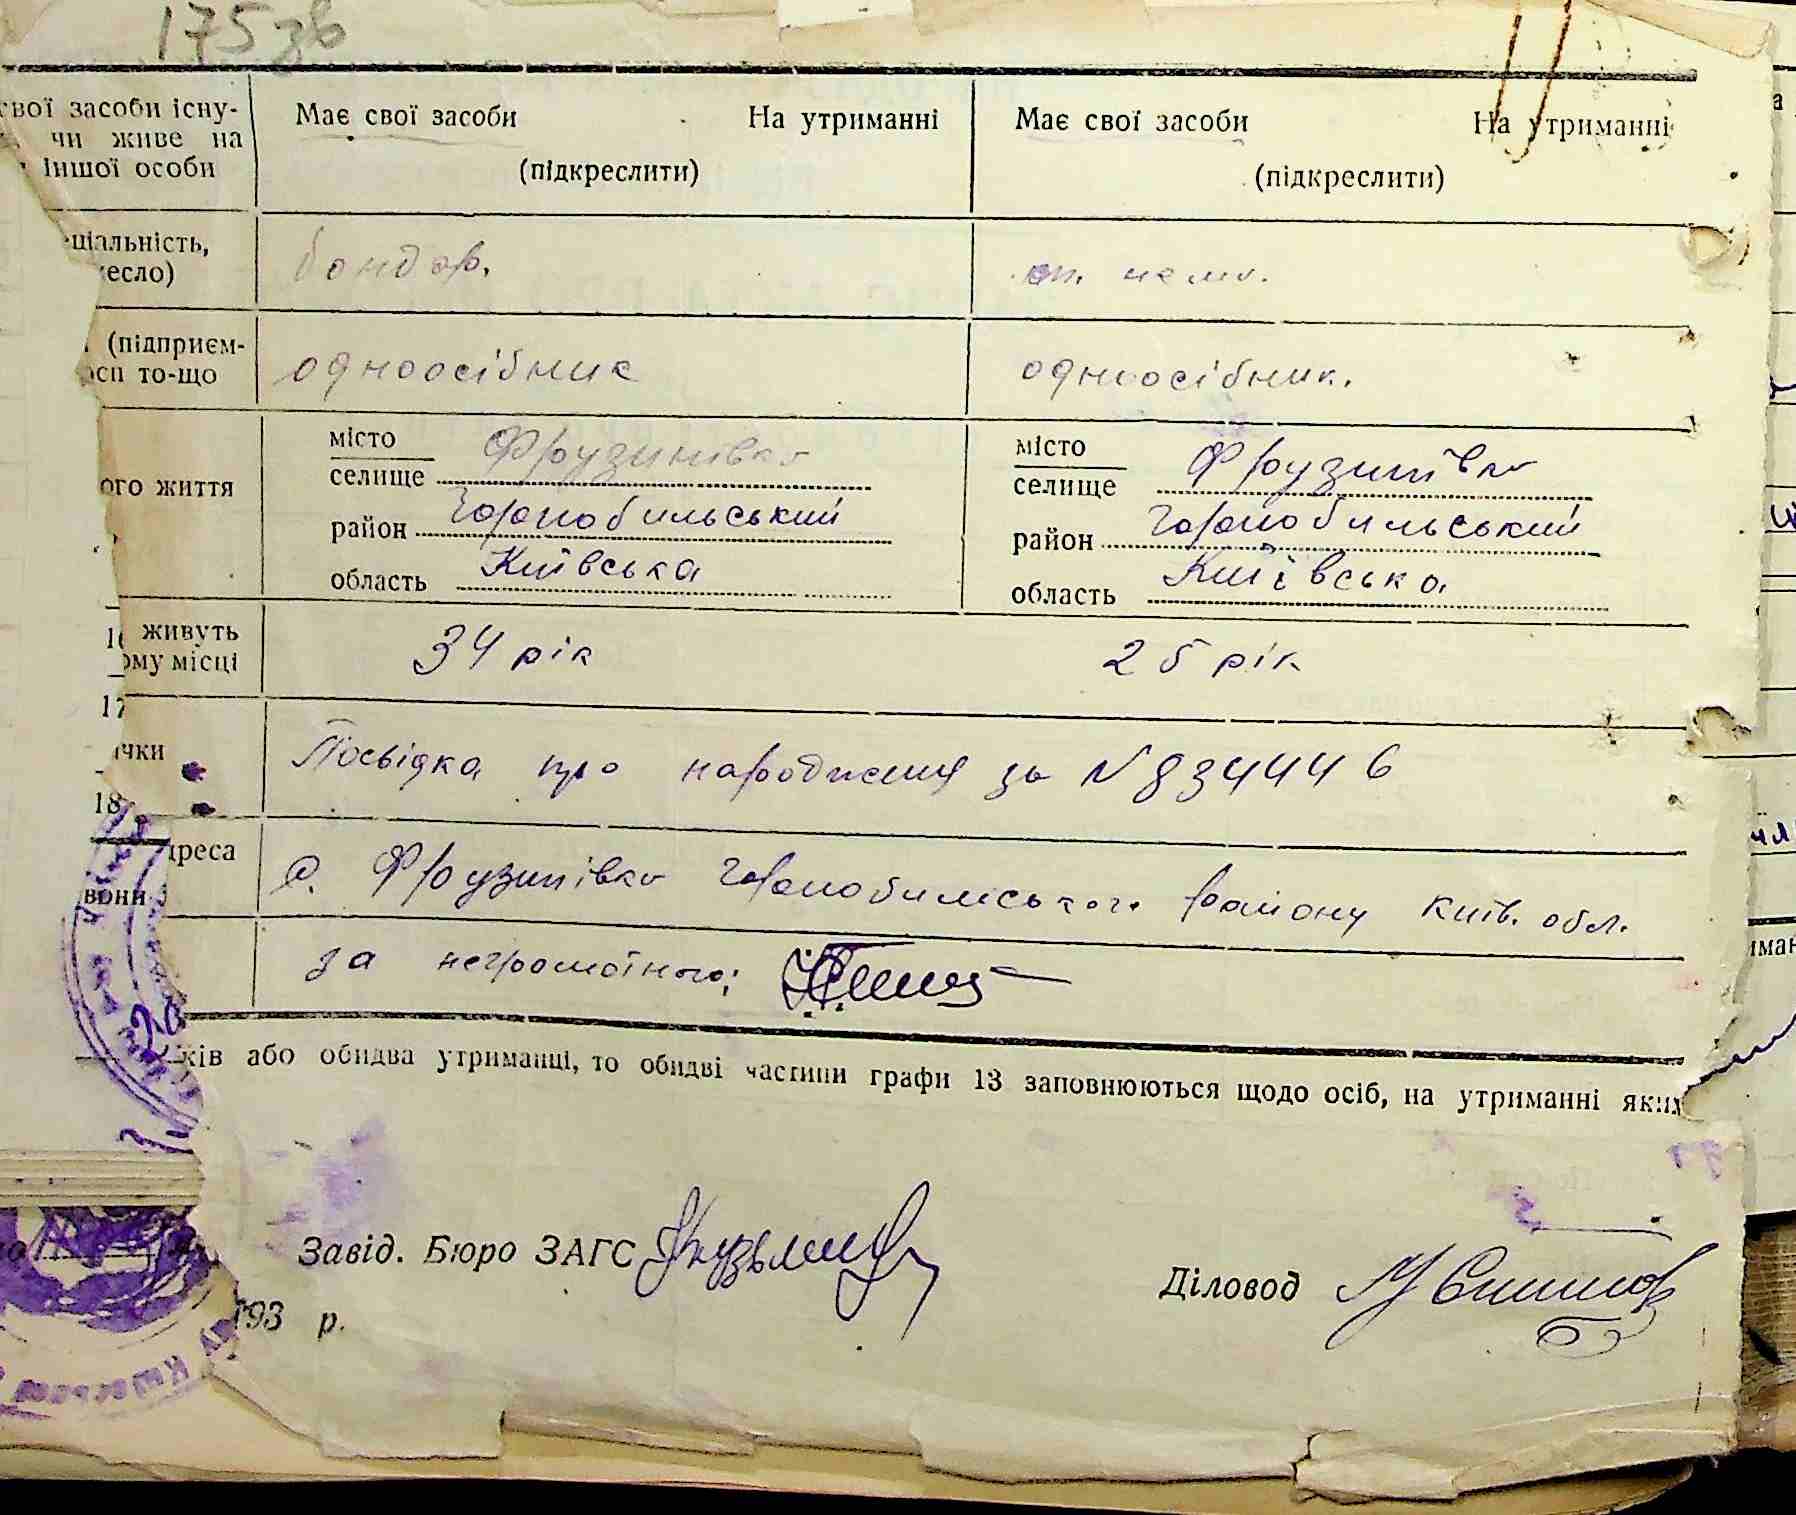 175 зв
свої засоби існу- Має свої засоби На утриманні Має свої засоби На утриманні
чи живе на
іншої особи (підкреслити) (підкреслити)
ціальність, бондар.
есло)
(підприєм- одноосібник одноосібник.
осп то-що
місто Фрузинівка місто Фрузинівка
ого життя селище селище
район Чорнобильський район Чорнобильський
область Київська область Київська
16 живуть 34 рік 25 рік
ому місці
17
ички Посвідка про народження за № 834446
18
дреса с. Фрузинівка Чорнобильського району Київ. обл.
вони
за неграмотного:
ків або обидва утриманці, то обидві частини графи 13 заповнюються щодо осіб, на утриманні яких
Завід. Бюро ЗАГС
Діловод
193 р.